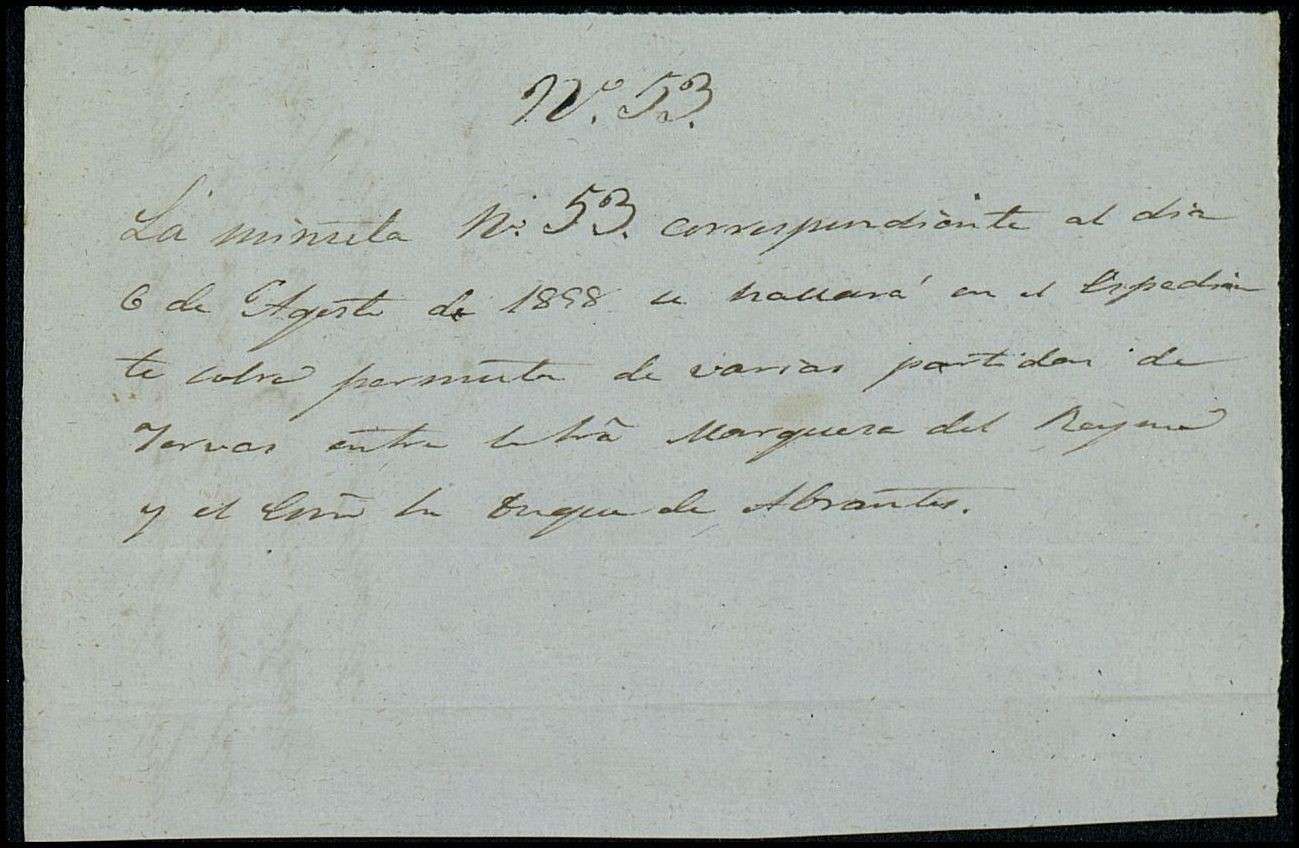 Nº. 53.
La minuta Nº. 53. correspondiente al dia
6 de Agosto de 1858 se hallará en el Espedien
te sobre permuta de varias partidas de
Yervas entre la Srã Marquesa del Reyno
y el Exmõ Sr Duque de Abrantes.